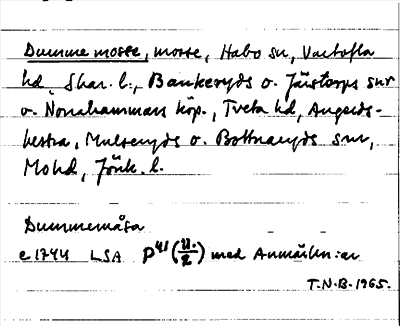 Dumme mosse, mosse, Habo sn, Vartofta
hd, Skar. l., Bankeryds o. Järstorps snr
o. Norrahammars köp., Tveta hd, Angerds-
hestra, Mulseryds o. Bottnaryds snr,
Mo hd, Jönk. l.
Dummemåsa
c 1744 LSA P 41 (11./2) med Anmärkn:ar
T.N.B. 1965.